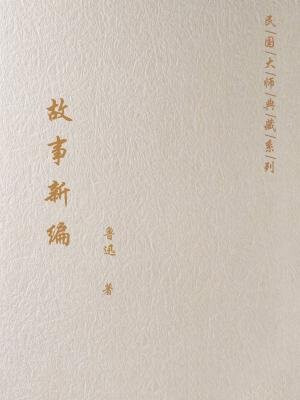 民国大师典藏系列
故事新编
鲁迅 著